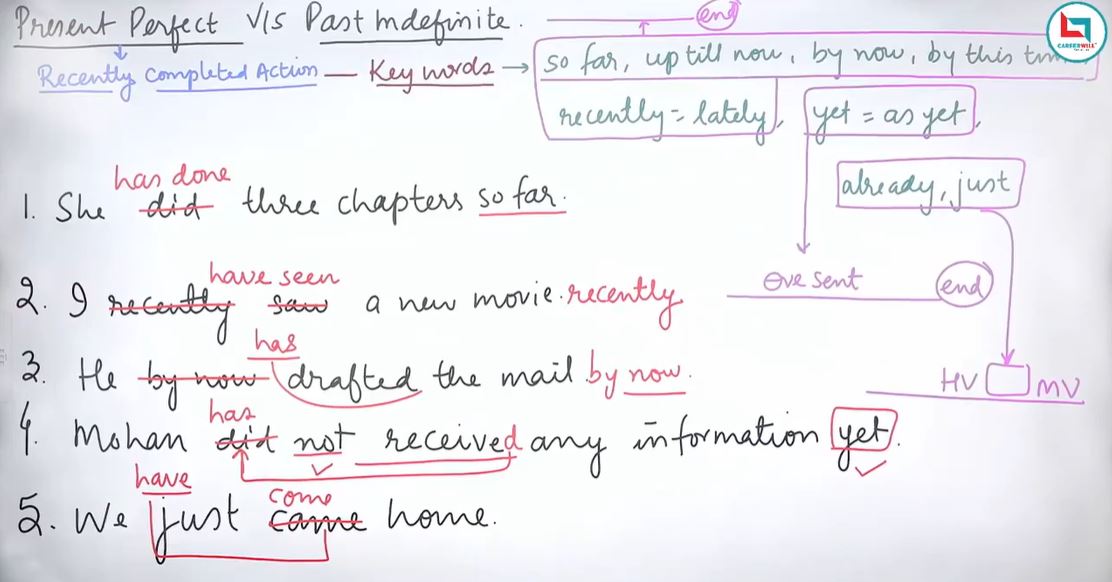 Present Perfect V/s Past Indefinite. end
Recently Completed Action — Key words → so far, up till now, by now, by this
recently = lately, yet = as yet,
already, just
has done
1. She did three chapters so far.
have seen
2. I recently saw a new movie. recently
⊖ve sent end
has
3. He by now drafted the mail by now.
HV MV
has
4. Mohan did not received any information yet.
have come
5. We just came home.
CAREERWILL